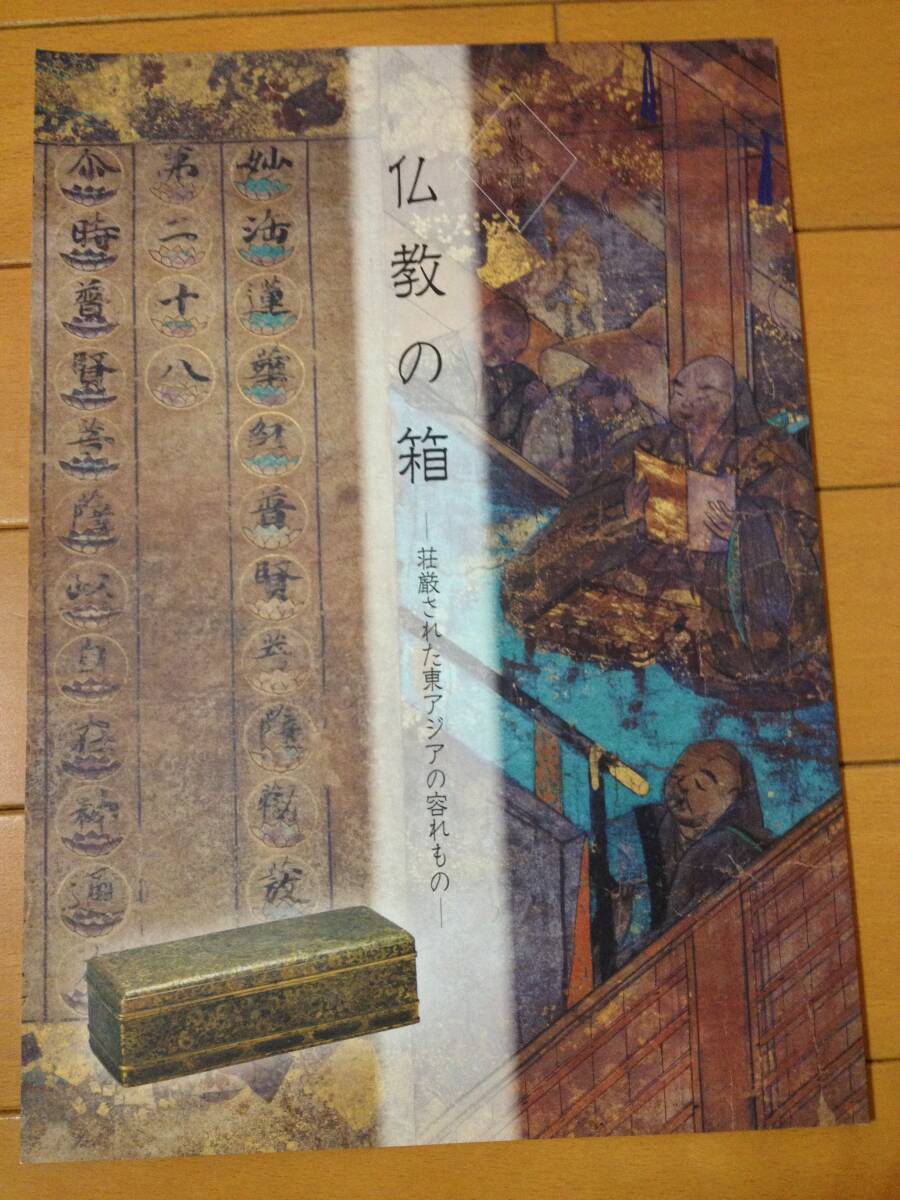 仏教の箱
―荘厳された東アジアの容れもの―
妙法蓮華經普賢菩薩勸發
第二十八
尒時普賢菩薩以自在神通